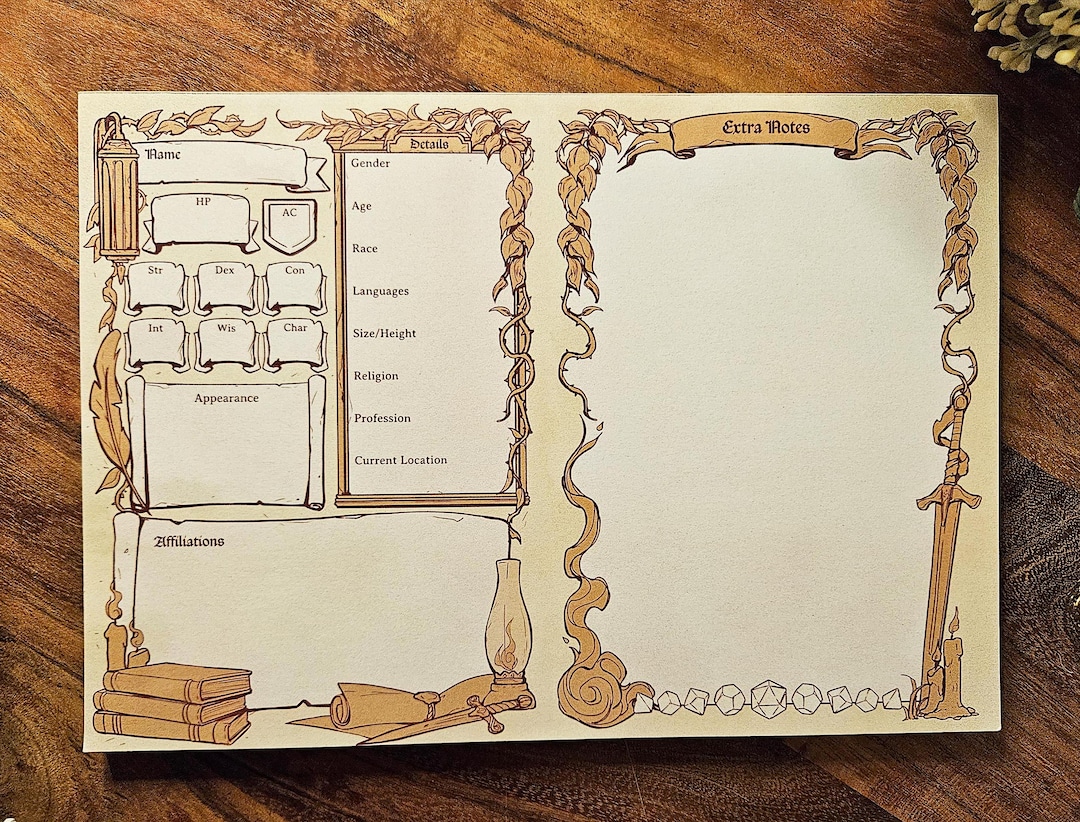 Name
HP
AC
Str
Dex
Con
Int
Wis
Char
Appearance
Details
Gender
Age
Race
Languages
Size/Height
Religion
Profession
Current Location
Affiliations
Extra Notes